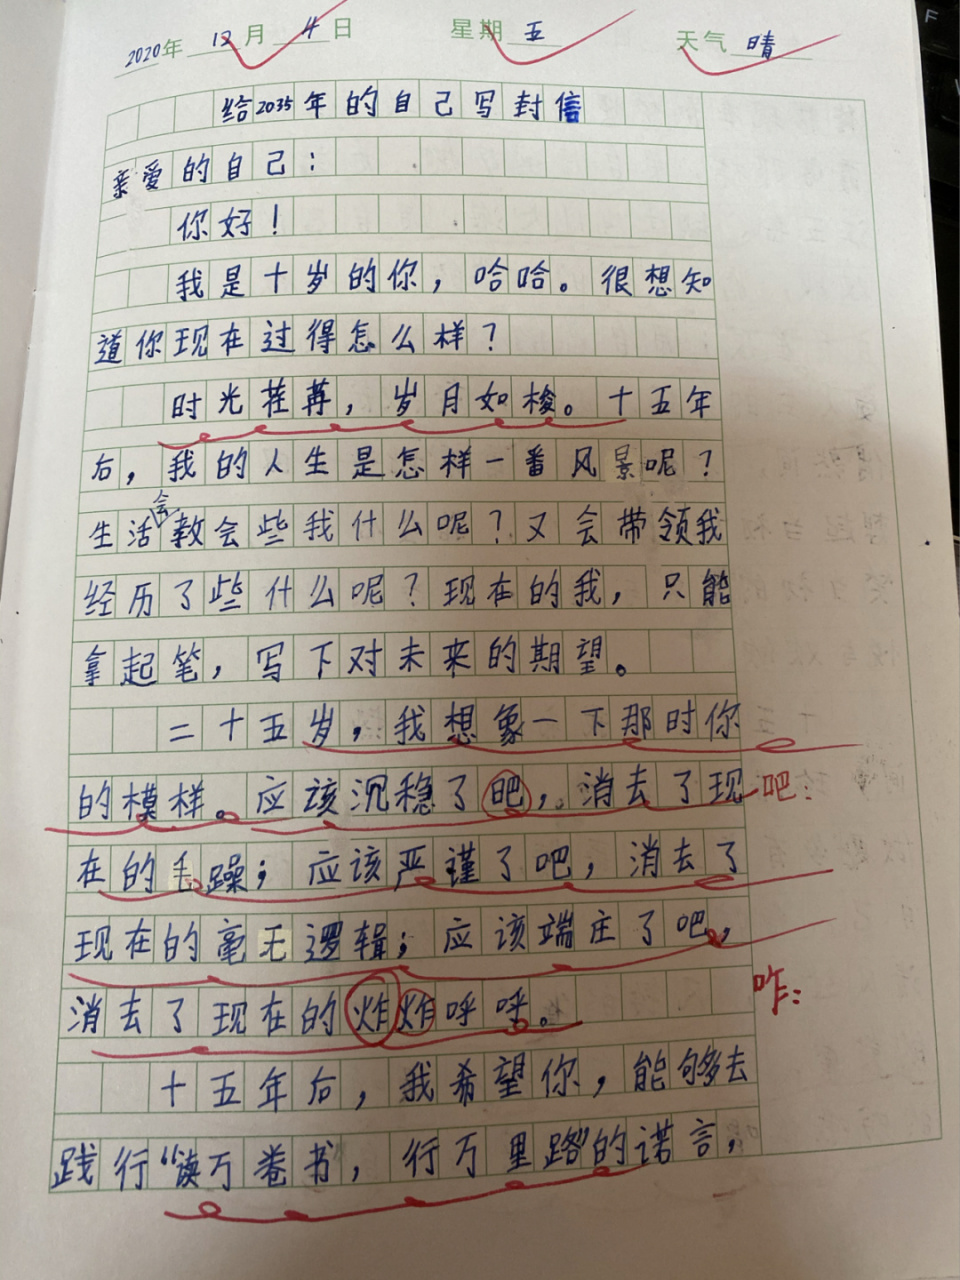 2020年 12月 4日 星期 五 天气 晴
给2035年的自己写封信
亲爱的自己：
你好！
我是十岁的你，哈哈。很想知
道你现在过得怎么样？
时光荏苒，岁月如梭。十五年
后，我的人生是怎样一番风景呢？
生活会教会些我什么呢？又会带领我
经历了些什么呢？现在的我，只能
拿起笔，写下对未来的期望。
二十五岁，我想象一下那时你
的模样。应该沉稳了吧，消去了现
吧：
在的毛躁；应该严谨了吧，消去了
现在的毫无逻辑；应该端庄了吧，
消去了现在的炸炸呼呼。
咋：
十五年后，我希望你，能够去
践行“读万卷书，行万里路”的诺言，